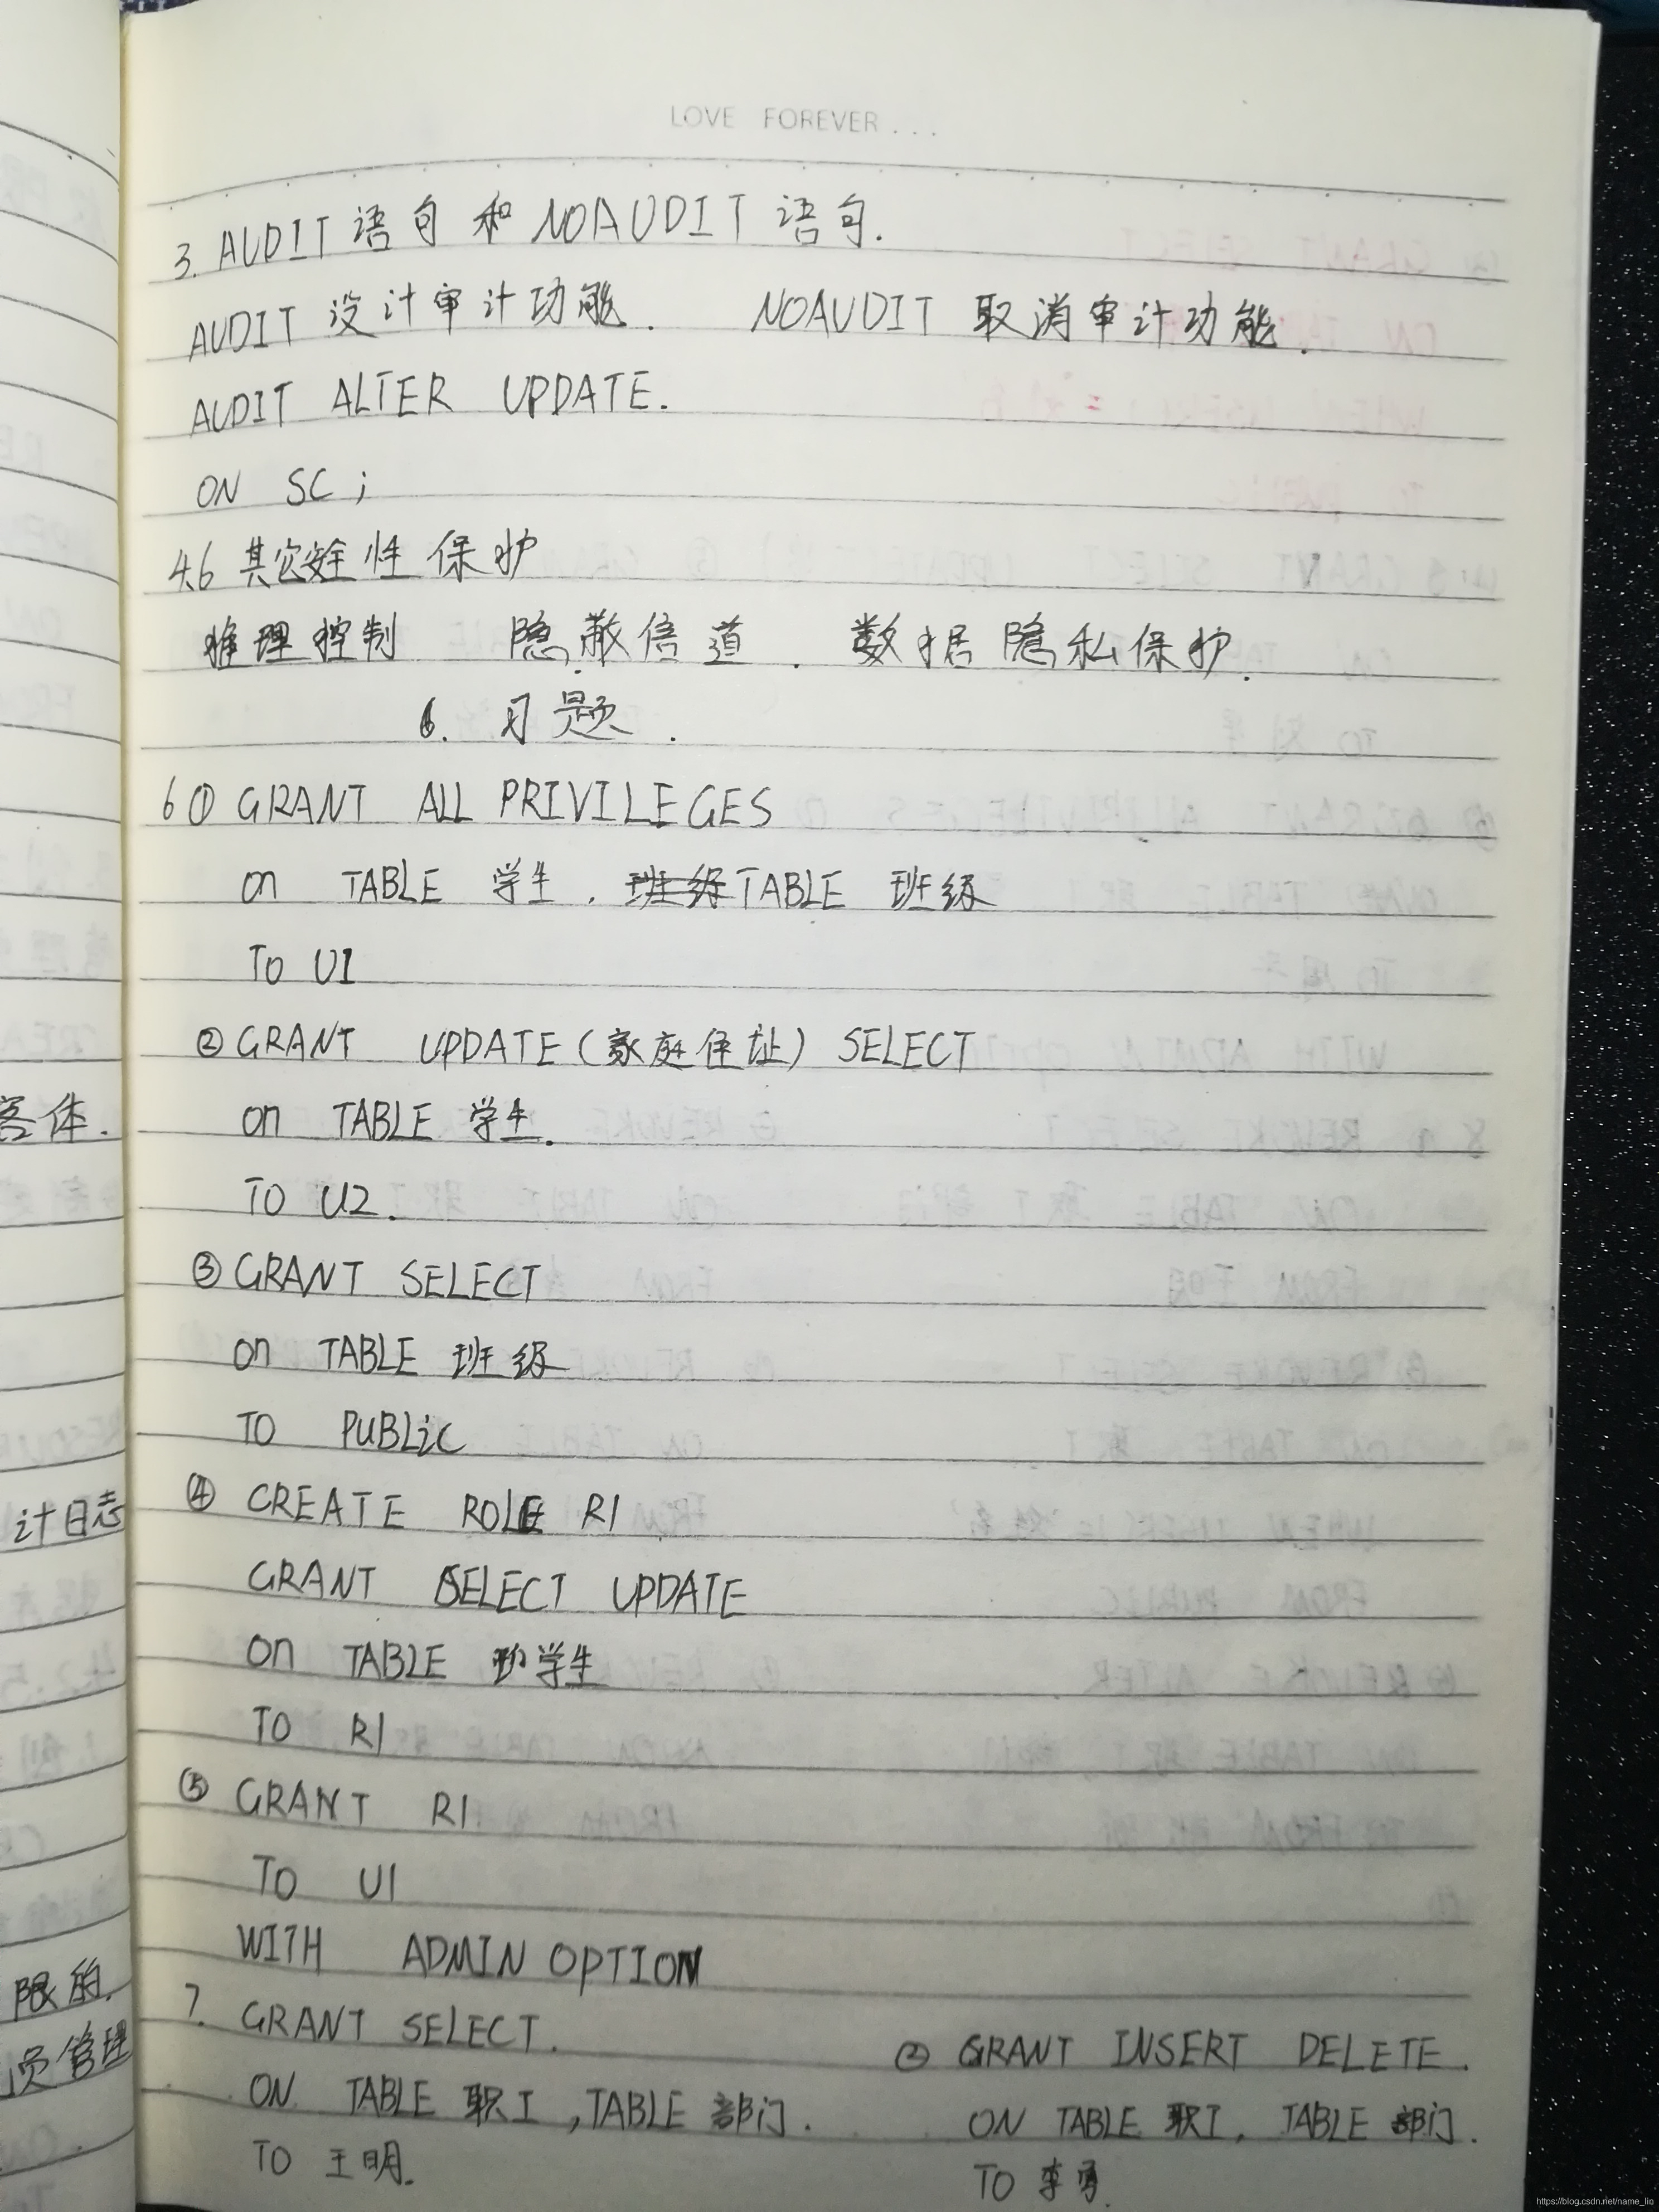 LOVE FOREVER...
3. AUDIT 语句 和 NOAUDIT 语句.
AUDIT 设计审计功能. NOAUDIT 取消审计功能.
AUDIT ALTER UPDATE.
ON SC;
4.6 其它安全性保护
推理控制 隐蔽信道. 数据隐私保护.
6. 习题.
6 ① GRANT ALL PRIVILEGES
on TABLE 学生, 班级 TABLE 班级
TO U1
② GRANT UPDATE(家庭住址) SELECT
on TABLE 学生.
TO U2.
③ GRANT SELECT
on TABLE 班级
TO PUBLiC
④ CREATE ROLE R1
GRANT SELECT UPDATE
on TABLE 学生
TO R1
⑤ GRANT R1
TO U1
WITH ADMIN OPTION
7. GRANT SELECT.
ON TABLE 职工, TABLE 部门.
TO 王明.
② GRANT INSERT DELETE.
ON TABLE 职工, TABLE 部门.
TO 李勇.
客体.
计日志
限的.
员管理
https://blog.csdn.net/name_lio